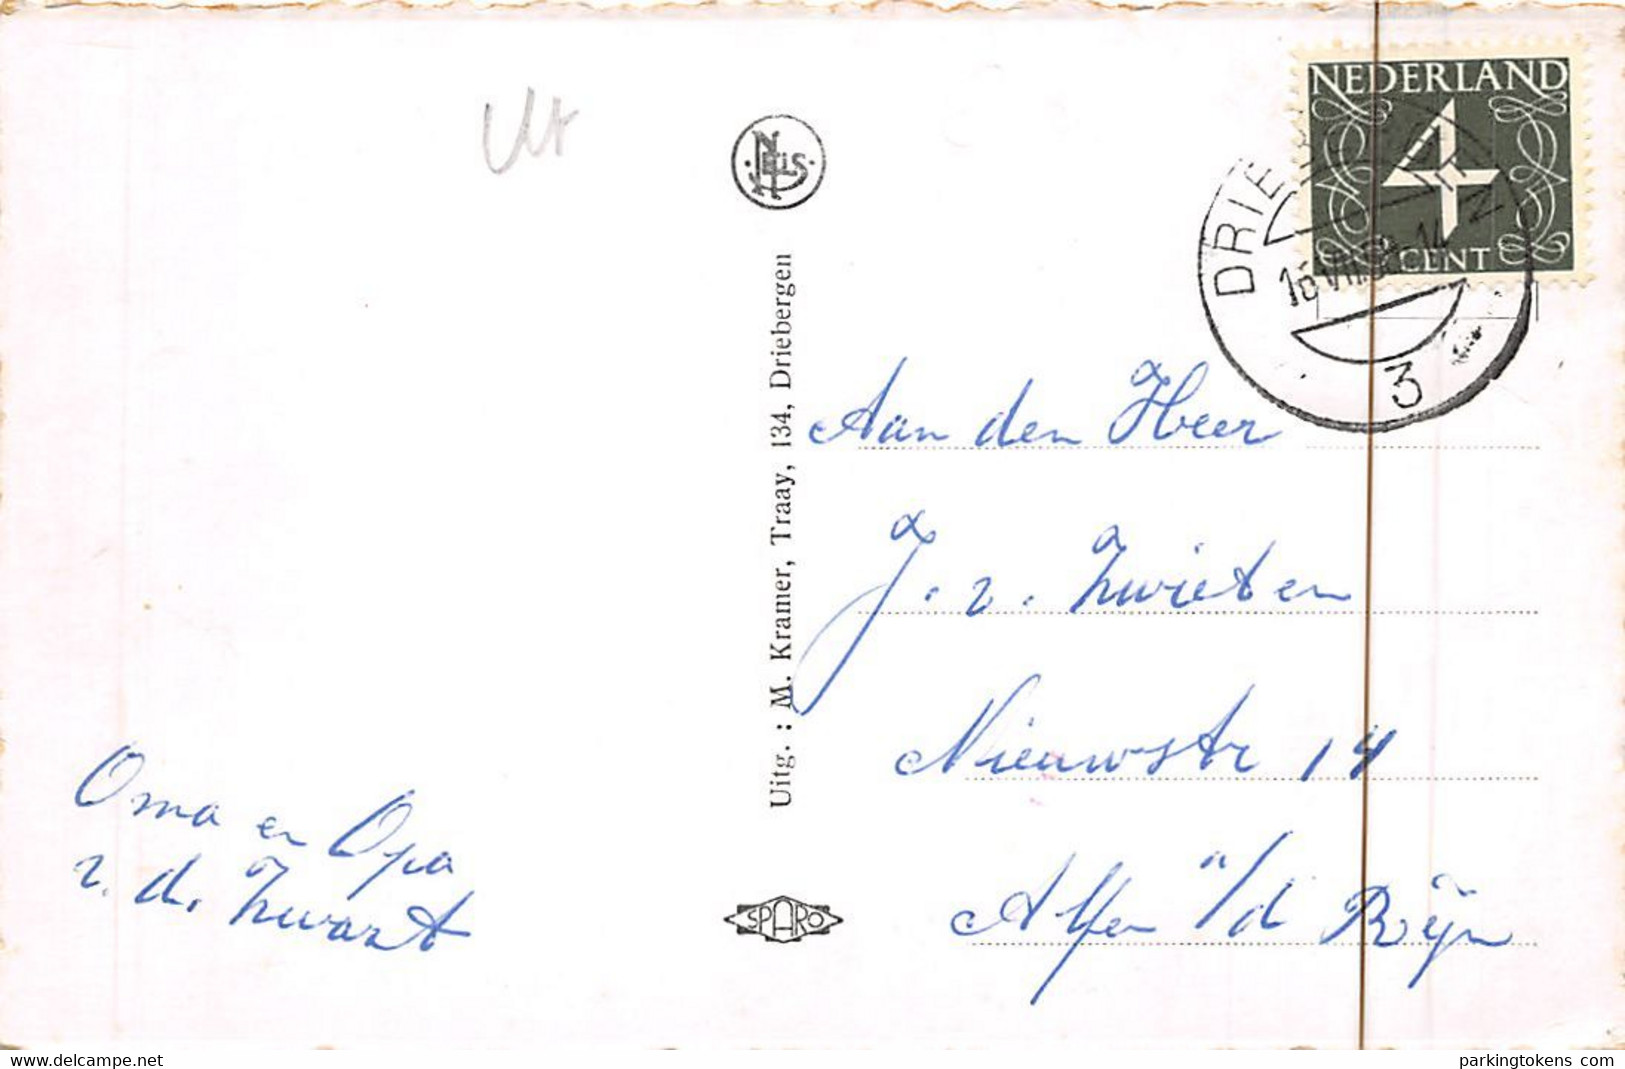 Ut
NELS
NEDERLAND
4
CENT
DRIEBERGEN
3
Uitg. : M. Kramer, Traay, 134, Driebergen
Aan den Heer
J. v. Zwieten
Nieuwstr 14
Alfen a/d Rijn
Oma en Opa
v. d. Zwart
SPARO
www.delcampe.net
parkingtokens.com